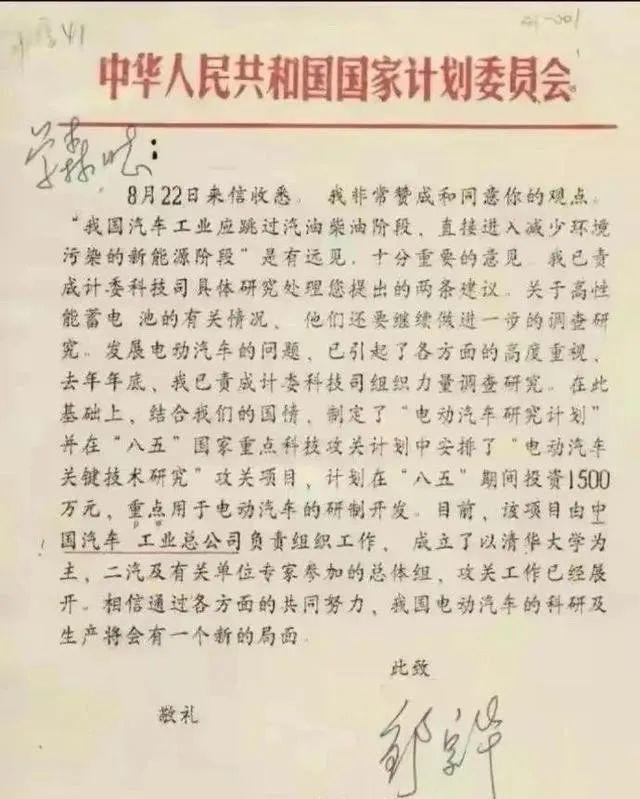 中华人民共和国国家计划委员会
学森同志：
8月22日来信收悉。我非常赞成和同意你的观点。
“我国汽车工业应跳过汽油柴油阶段，直接进入减少环境
污染的新能源阶段”是有远见、十分重要的意见。我已责
成计委科技司具体研究处理您提出的两条建议。关于高性
能蓄电 池的有关情况、他们还要继续做进一步的调查研
究。发展电动汽车的问题、已引起了各方面的高度重视、
去年年底、我已责成计委科技司组织力量调查研究。在此
基础上、结合我们的国情、制定了“电动汽车研究计划”
并在“八五”国家重点科技攻关计划中安排了“电动汽车
关键技术研究”攻关项目，计划在“八五”期间投资1500
万元，重点用于电动汽车的研制开发。目前，该项目由中
国汽车 工业总公司负责组织工作、成立了以清华大学为
主、二汽及有关单位专家参加的总体组，攻关工作已经展
开。相信通过各方面的共同努力、我国电动汽车的科研及
生产将会有一个新的局面。
此致
敬礼
邹家华